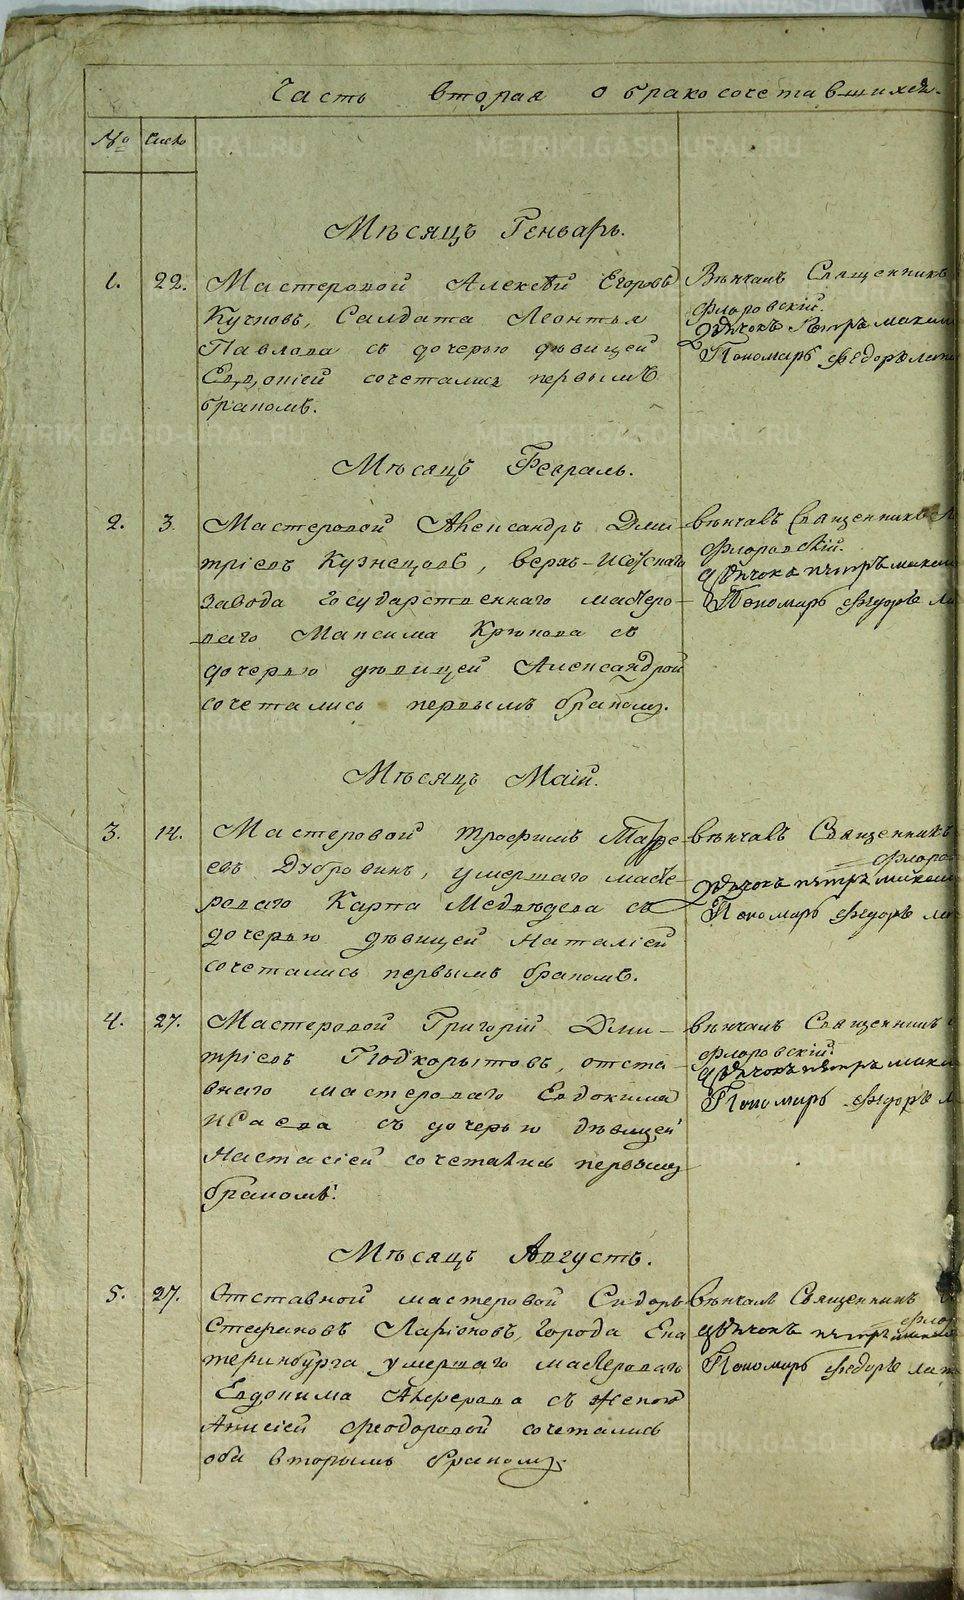 Часть вторая о бракосочетавшихся
№ число
Мѣсяцъ Геньварь.
1. 22. Мастеровой Алексѣй Егоровъ
Кучновъ, Салдата Леонтья
Павлова съ дочерью дѣвицей
Евдокіей сочетались первымъ
бракомъ.
Вѣнчалъ Священникъ
Флоровскій.
дьячокъ Петръ
Пономарь Федоръ
Мѣсяцъ Февраль.
2. 3 Мастеровой Александръ Дми
тріевъ Кузнецовъ, Верхъ-Исецкаго
завода государственнаго мастеро-
ваго Максима Крюкова съ
дочерью дѣвицей Александрой
сочетались первымъ бракомъ.
вѣнчалъ Священникъ
Флоровскій.
дьячокъ пѣтръ
Пономарь Федоръ
Мѣсяцъ Маій.
3. 14. Мастеровой Трофимъ
евъ Дубровинъ, умершаго масте
роваго Карпа Медвѣдева съ
дочерью дѣвицей Наталіей
сочетались первымъ бракомъ.
вѣнчалъ Священникъ
Флоро
дьячокъ пѣтръ
Пономарь Федоръ
4. 27. Мастеровой Григорій Дми-
тріевъ Подкорытовъ, отста
внаго мастероваго Евдокима
Исаева съ дочерью дѣвицей
Настасіей сочетались первымъ
бракомъ.
вѣнчалъ Священникъ
Флоровскій.
дьячокъ пѣтръ
Пономарь Федоръ
Мѣсяцъ Августъ.
5. 27. Отставной мастеровой Сидоръ
Стефановъ Ларіоновъ, города Ека
теринбурга умершаго мастероваго
Евдокима Алферова съ женой
Анисіей Феодоровой сочетались
оба вторымъ бракомъ.
Вѣнчалъ Священникъ
Флор
дьячокъ пѣтръ
Пономарь Федоръ
METRIKI.GASO-URAL.RU